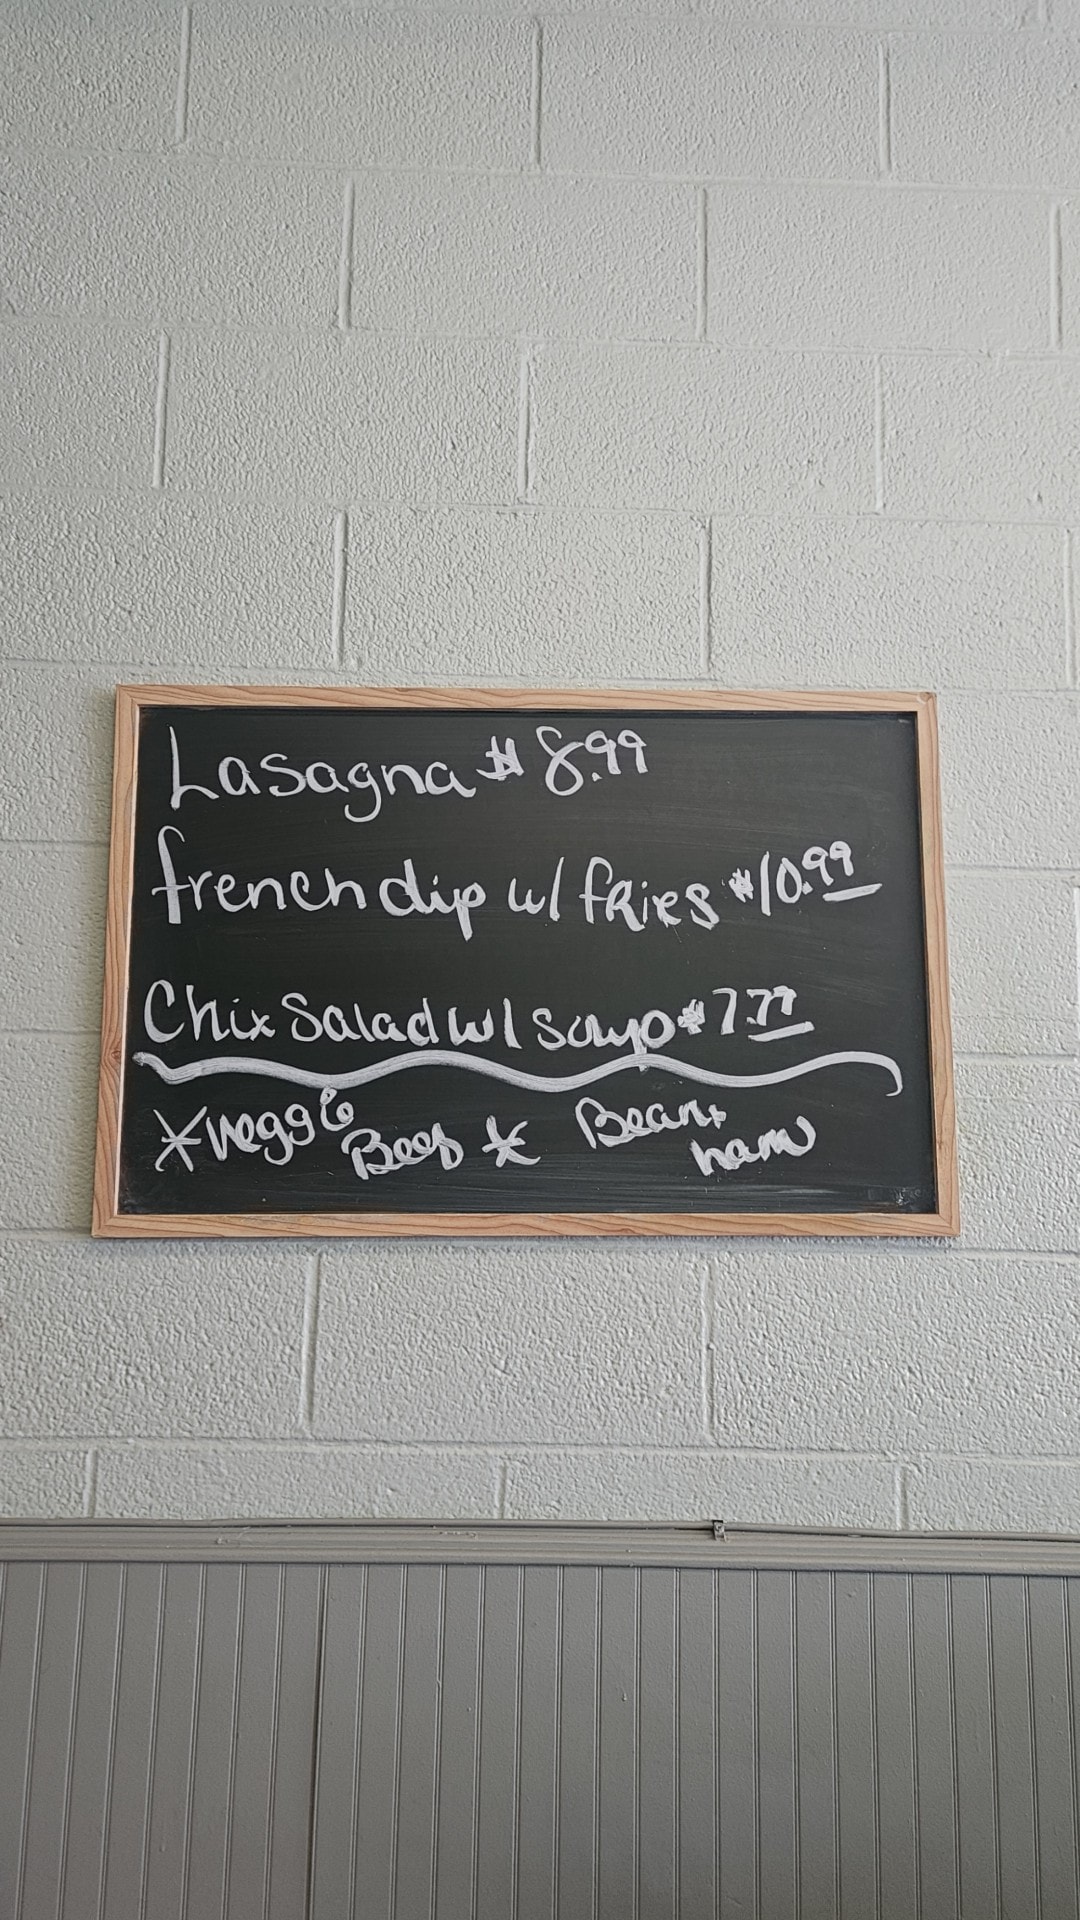 Lasagna $8.99
french dip w/ fries $10.99
Chix Salad w/ soup $7.99
*veggie Beef * Bean + ham